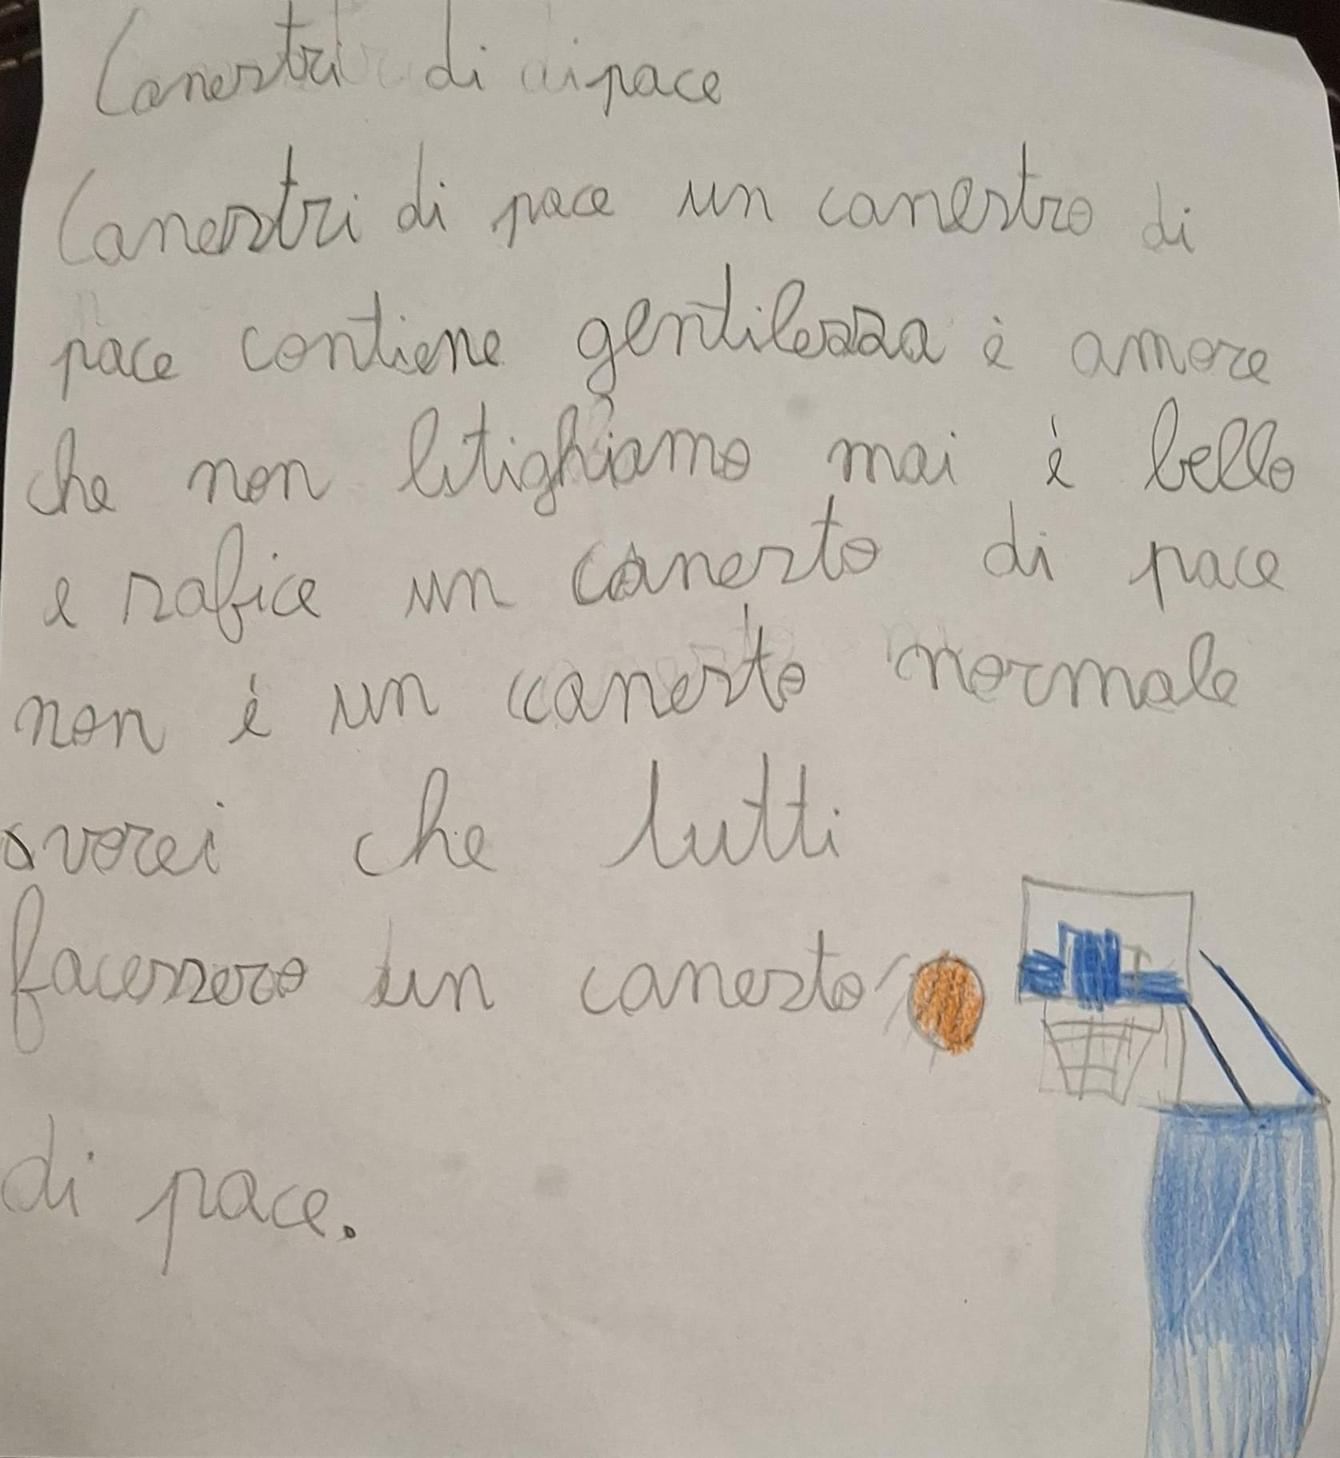 Canestri di pace
Canestri di pace un canestro di
pace contiene gentilezza è amore
che non litighiamo mai è bello
e rafice un canesto di pace
non è un canesto normale
vorei che tutti
facessero un canesto
di pace.